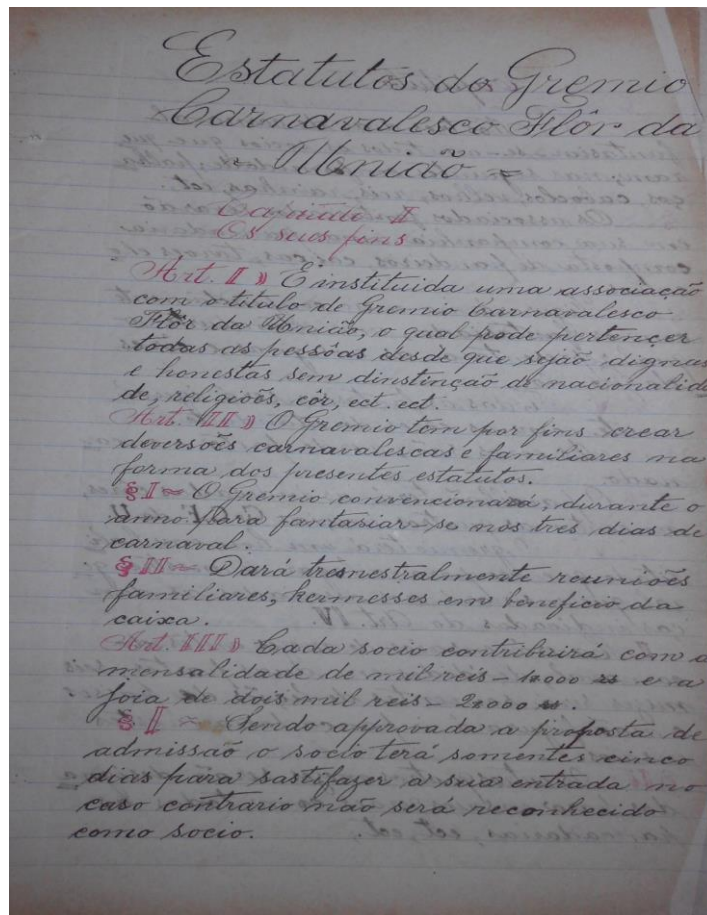 Estatutos do Gremio
Carnavalesco Flôr da
União =
Capitulo I
Os seus fins
Art. I » E instituida uma associação
com o titulo de Gremio Carnavalesco
Flôr da União, o qual pode pertençer
todas as pessôas desde que sejaõ; dignas
e honestas sem dinstinção de nacionalid
de, religiões, côr, ect. ect.
Art. II » O Gremio tem por fins crear
deversões carnavalescas e familiares na
forma dos presentes estatutos.
§ I = O Gremio convencionará, durante o
anno para fantasiar-se nos tres dias de
carnaval.
§ II = Dará tremestralmente reuniões
familiares, kermesses em beneficio da
caixa.
Art. III » Cada socio contribuirá com a
mensalidade de mil reis - 1000 rs e a
joia de dois mil reis - 2000 rs.
§ I = Sendo approvada a proposta de
admissaõ o socio terá somentes cinco
dias para sastifazer a sua entrada no
caso contrario naõ será reconhecido
como socio.